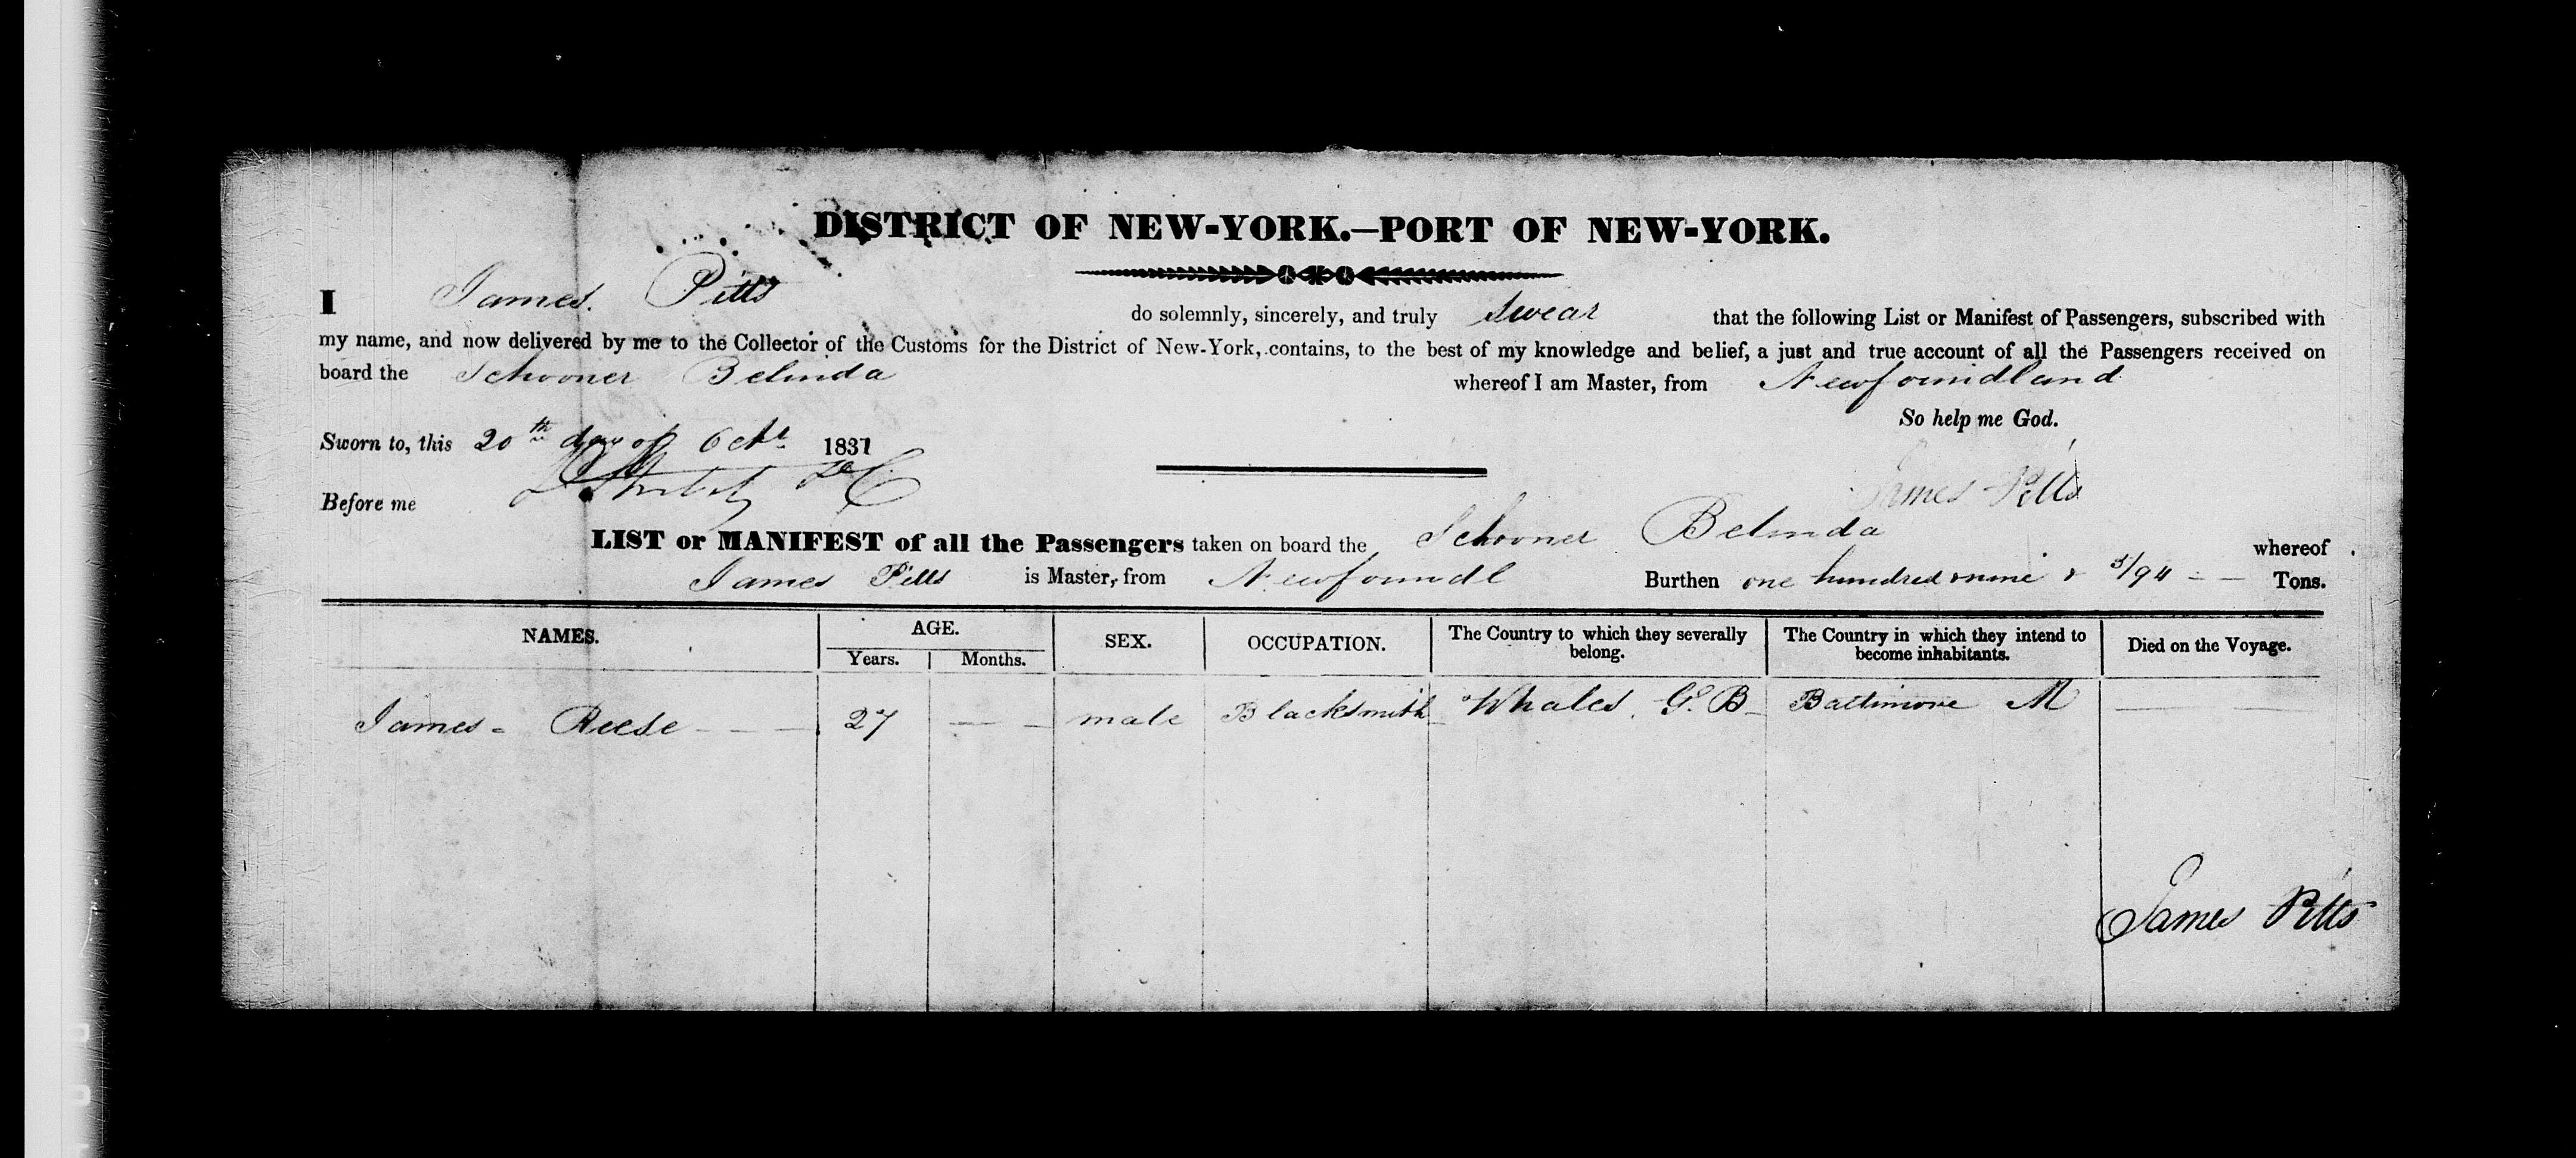 DISTRICT OF NEW-YORK.—PORT OF NEW-YORK.
I James Pitts do solemnly, sincerely, and truly swear that the following List or Manifest of Passengers, subscribed with
my name, and now delivered by me to the Collector of the Customs for the District of New-York, contains, to the best of my knowledge and belief, a just and true account of all the Passengers received on
board the Schooner Belinda whereof I am Master, from Newfoundland
So help me God.
Sworn to, this 20th day of Oct. 1837
James Pitts
Before me
LIST or MANIFEST of all the Passengers taken on board the Schooner Belinda whereof
James Pitts is Master, from Newfoundl Burthen one hundred & nine & /94 Tons.
NAMES. AGE. SEX. OCCUPATION. The Country to which they severally belong. The Country in which they intend to become inhabitants. Died on the Voyage.
Years. Months.
James Reese 27 — male Blacksmith Whales. G. B Baltimore M —
James Pitts